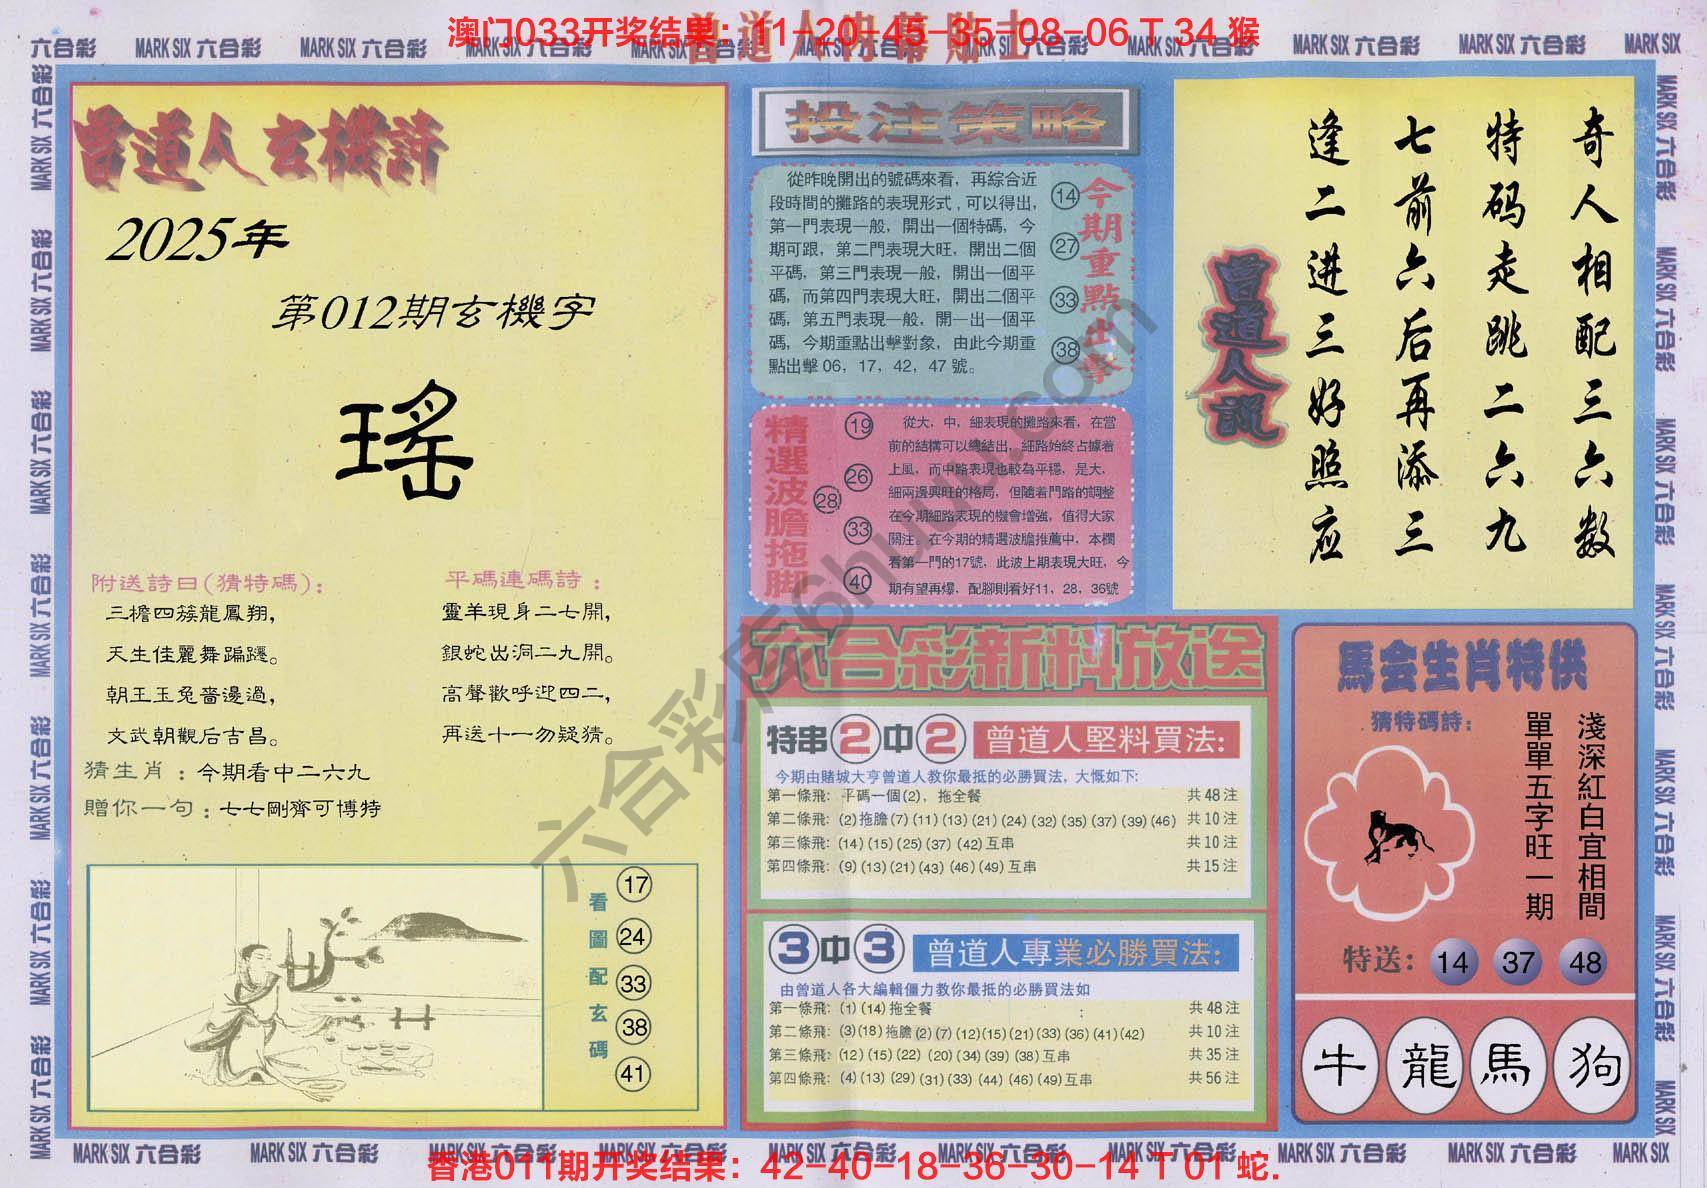 澳门033开奖结果：11-20-45-35-08-06 T 34 猴
曾道人内幕貼士
六合彩 MARK SIX 六合彩 MARK SIX 六合彩 MARK SIX 六合彩 MARK SIX 六合彩 MARK SIX 六合彩 MARK SIX 六合彩 MARK SIX
曾道人玄機詩
2025年
第012期玄機字
瑤
附送詩曰(猜特碼)：
三檐四簇龍鳳翔，
天生佳麗舞蹁躚。
朝王玉兔嗇邊過，
文武朝觀后吉昌。
平碼連碼詩：
靈羊現身二七開，
銀蛇出洞二九開。
高聲歡呼迎四二，
再送十一勿疑猜。
猜生肖：今期看中二六九
贈你一句：七七剛齊可博特
看圖配玄碼
17
24
33
38
41
投注策略
從昨晚開出的號碼來看，再綜合近
段時間的攤路的表現形式，可以得出，
第一門表現一般，開出一個特碼，今
期可跟，第二門表現大旺，開出二個
平碼，第三門表現一般，開出一個平
碼，而第四門表現大旺，開出二個平
碼，第五門表現一般，開一出一個平
碼，今期重點出擊對象，由此今期重
點出擊 06，17，42，47 號。
14
27
33
38
今期重點出擊
精選波膽拖脚
19
26
28
33
40
從大，中，細表現的攤路來看，在當
前的結構可以總結出，細路始終占據着
上風，而中路表現也較為平穩，是大，
細兩邊興旺的格局，但隨着門路的調整
在今期細路表現的機會增強，值得大家
關注。在今期的精選波膽推薦中，本欄
看第一門的17號，此波上期表現大旺，今
期有望再爆，配腳則看好11，28，36號
六合彩新料放送
特串2中2 曾道人堅料買法：
今期由賭城大亨曾道人教你最抵的必勝買法，大慨如下：
第一條飛：平碼一個(2)，拖全餐 共48注
第二條飛：(2)拖膽(7)(11)(13)(21)(24)(32)(35)(37)(39)(46) 共10注
第三條飛：(14)(15)(25)(37)(42)互串 共10注
第四條飛：(9)(13)(21)(43)(46)(49)互串 共15注
3中3 曾道人專業必勝買法：
由曾道人各大編輯僵力教你最抵的必勝買法如
第一條飛：(1)(14)拖全餐 ： 共48注
第二條飛：(3)(18)拖膽(2)(7)(12)(15)(21)(33)(36)(41)(42) 共10注
第三條飛：(12)(15)(22)(20)(34)(39)(38)互串 共35注
第四條飛：(4)(13)(29)(31)(33)(44)(46)(49)互串 共56注
奇人相配三六数
特码走跳二六九
七前六后再添三
逢二进三好照应
曾道人説
馬会生肖特供
猜特碼詩：
淺深紅白宜相間
單單五字旺一期
特送：14 37 48
牛 龍 馬 狗
六合彩库6huuu.com
MARK SIX 六合彩 MARK SIX 六合彩 MARK SIX 六合彩 MARK SIX 六合彩 MARK SIX 六合彩 MARK SIX 六合彩 MARK SIX 六合彩 MARK SIX 六合彩 MARK SIX 六合彩 MARK SIX
香港011期开奖结果：42-40-18-36-30-14 T 01 蛇.